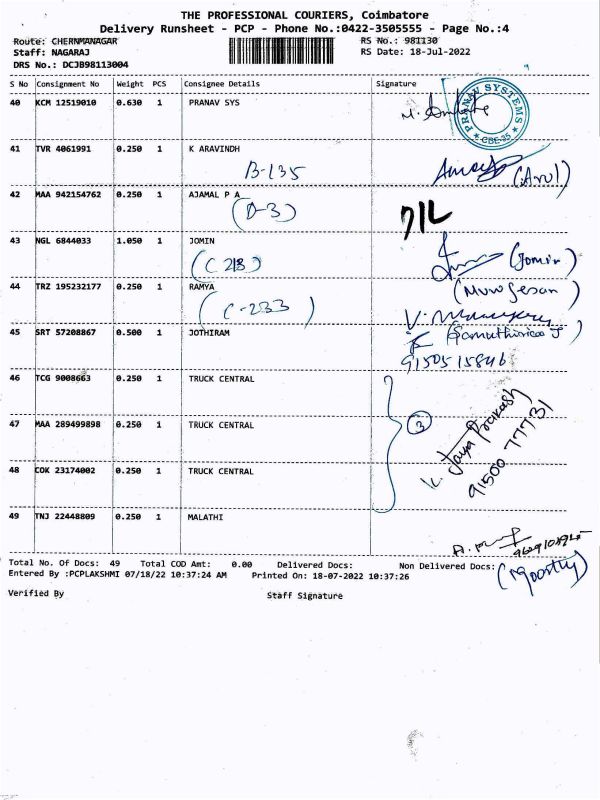 THE PROFESSIONAL COURIERS, Coimbatore
Delivery Runsheet - PCP - Phone No.:0422-3505555 - Page No.:4
Route: CHERNMANAGAR RS No.: 981130
Staff: NAGARAJ RS Date: 18-Jul-2022
DRS No.: DCJB98113004
S No Consignment No Weight PCS Consignee Details Signature
40 KCM 12519010 0.630 1 PRANAV SYS
PRANAV SYSTEMS
CBE-35
41 TVR 4061991 0.250 1 K ARAVINDH
B-135 (Arul)
42 MAA 942154762 0.250 1 AJAMAL P A
(D-3)
43 NGL 6844033 1.050 1 JOMIN
(C 218) (Jomin)
44 TRZ 195232177 0.250 1 RAMYA
(C-233) (Murugesan)
45 SRT 57208867 0.500 1 JOTHIRAM
9150515846
46 TCG 9008663 0.250 1 TRUCK CENTRAL
47 MAA 289499898 0.250 1 TRUCK CENTRAL
3
K. Jaya Prakash
91500 77731
48 COK 23174002 0.250 1 TRUCK CENTRAL
49 TNJ 22448809 0.250 1 MALATHI
Total No. Of Docs: 49 Total COD Amt: 0.00 Delivered Docs: Non Delivered Docs:
(Moorthy)
Entered By :PCPLAKSHMI 07/18/22 10:37:24 AM Printed On: 18-07-2022 10:37:26
Verified By Staff Signature